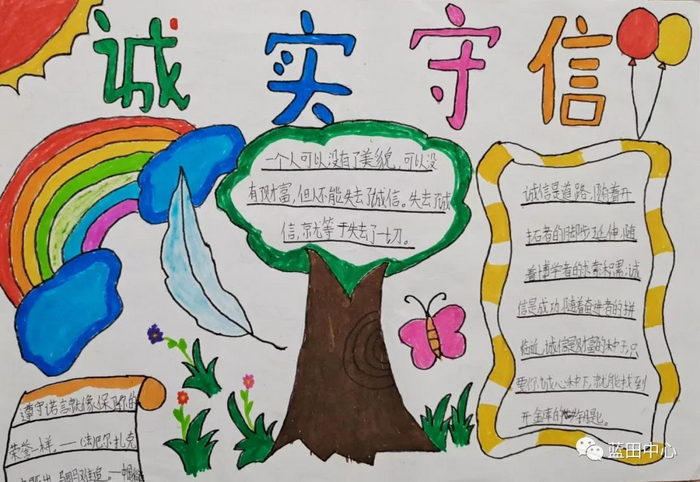 诚实守信
一个人可以没有了美貌,可以没
有了财富,但不能失去了诚信。失去了诚
信,就等于失去了一切。
诚信是道路,随着开
拓者的脚步延伸,随
着博学者的求索积累,诚
信是成功,随着奋进者的拼
临近,诚信是财富的种子,只
要你诚心种下,就能找到
开金库的钥匙。
遵守诺言就像保卫你的
荣誉一样。——(法)巴尔扎克
既出,驷马难追。——中国
蓝田中心